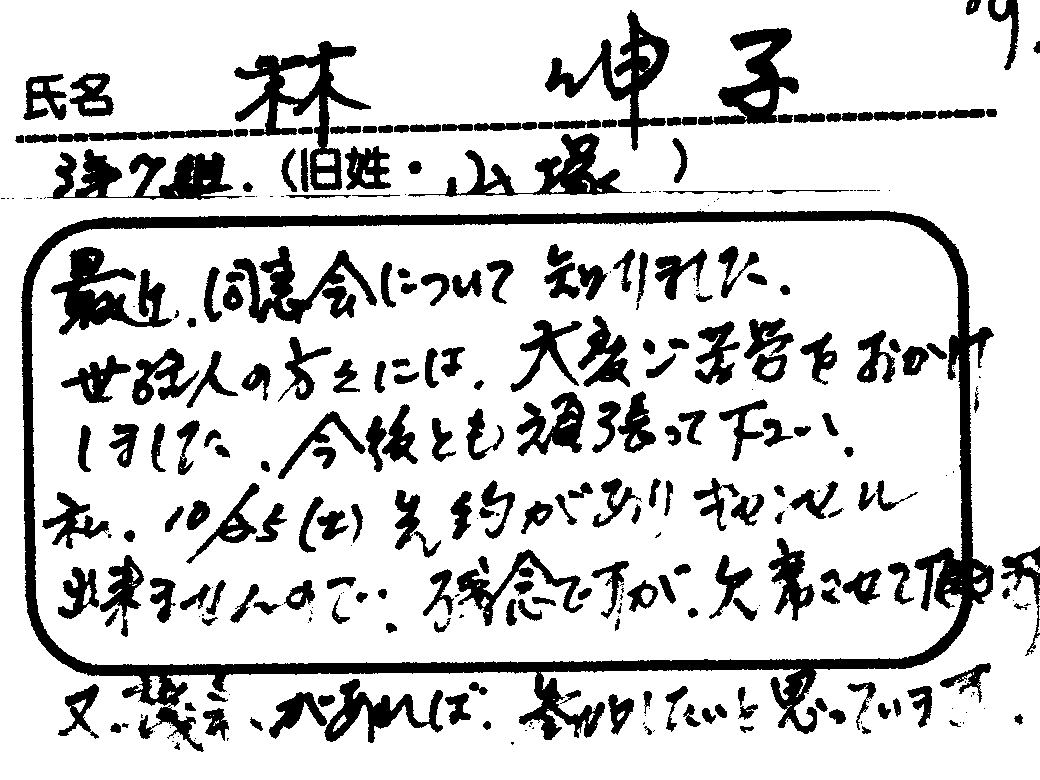 氏名 林 伸子
(旧姓・山塚)
最近、同窓会について知りました。
世話人の方々には、大変ご苦労をおかけ
しました。今後とも頑張って下さい。
私、10/25(土)先約がありキャンセル
出来ませんので、残念ですが、欠席させて頂きます
又、機会があれば、参加したいと思っています。